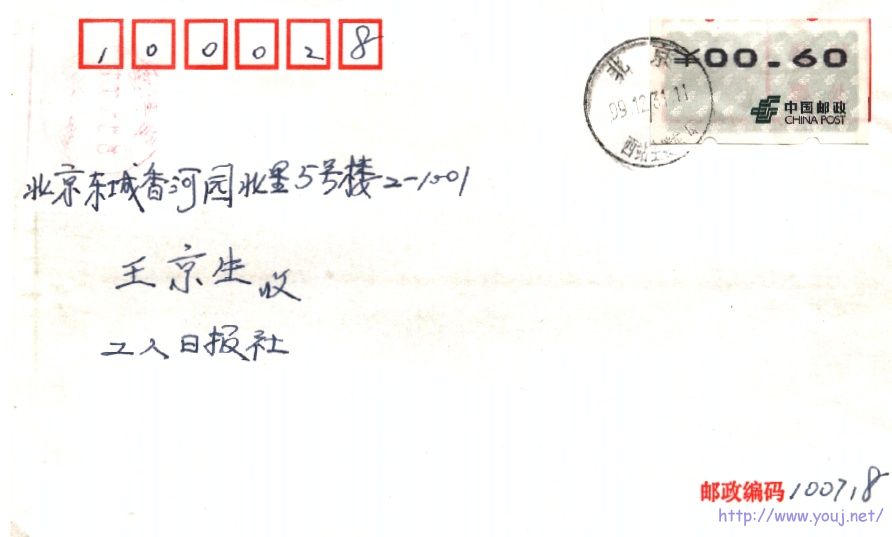 100028
¥00.60
中国邮政
CHINA POST
北京
99.12.31.11
北京东城香河园北里5号楼2-1001
王京生收
工人日报社
邮政编码100718
http://www.youj.net/